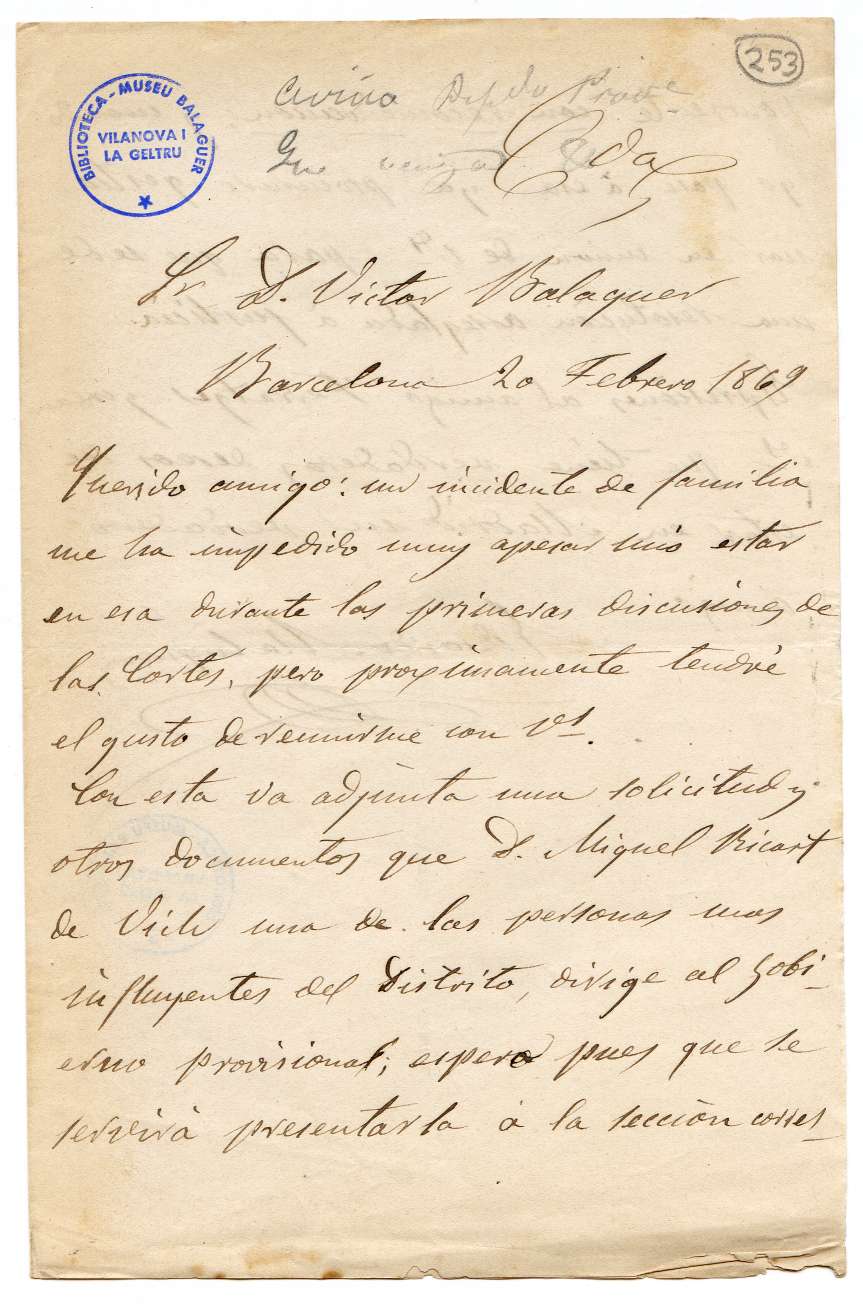 253
BIBLIOTECA - MUSEU BALAGUER
VILANOVA I
LA GELTRU
Cda
Sr. D. Victor Balaguer
Barcelona 20 Febrero 1869
Querido amigo: un incidente de familia
me ha impedido muy apesar mio estar
en esa durante las primeras discusiones de
las Cortes, pero proximamente tendré
el gusto de reunirme con Vd.
Con esta va adjunta una solicitud y
otros documentos que D. Miguel Ricart
de Vich una de las personas mas
influyentes del Distrito, dirige al Gobi-
erno provisional; espero pues que se
servirà presentarla à la sección corres-